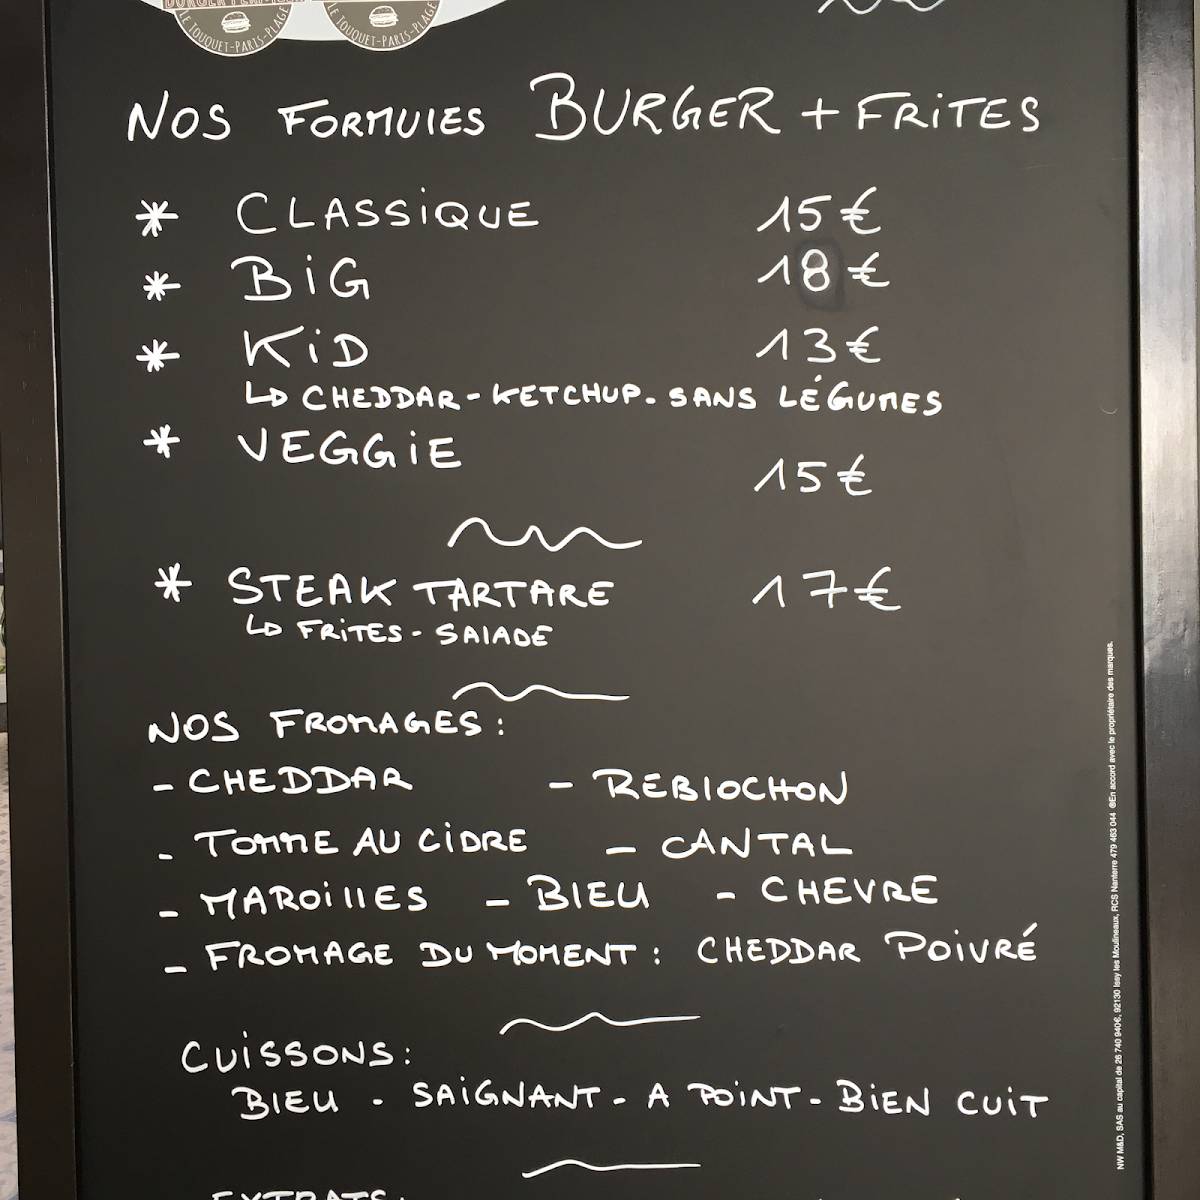 LE TOUQUET-PARIS-PLAGE LE TOUQUET-PARIS-PLAGE
NOS FORMULES BURGER + FRITES
* CLASSIQUE 15€
* BIG 18€
* KID 13€
↳ CHEDDAR - KETCHUP - SANS LÉGUMES
* VEGGIE 15€
* STEAK TARTARE 17€
↳ FRITES - SALADE
NOS FROMAGES :
- CHEDDAR - REBLOCHON
- TOMME AU CIDRE - CANTAL
- MAROILLES - BLEU - CHEVRE
- FROMAGE DU MOMENT : CHEDDAR POIVRÉ
CUISSONS :
BLEU - SAIGNANT - A POINT - BIEN CUIT
EXTRATS :
NW M&D, SAS au capital de 26 740 940€, 92130 Issy les Moulineaux, RCS Nanterre 479 463 044 ®En accord avec le propriétaire des marques.